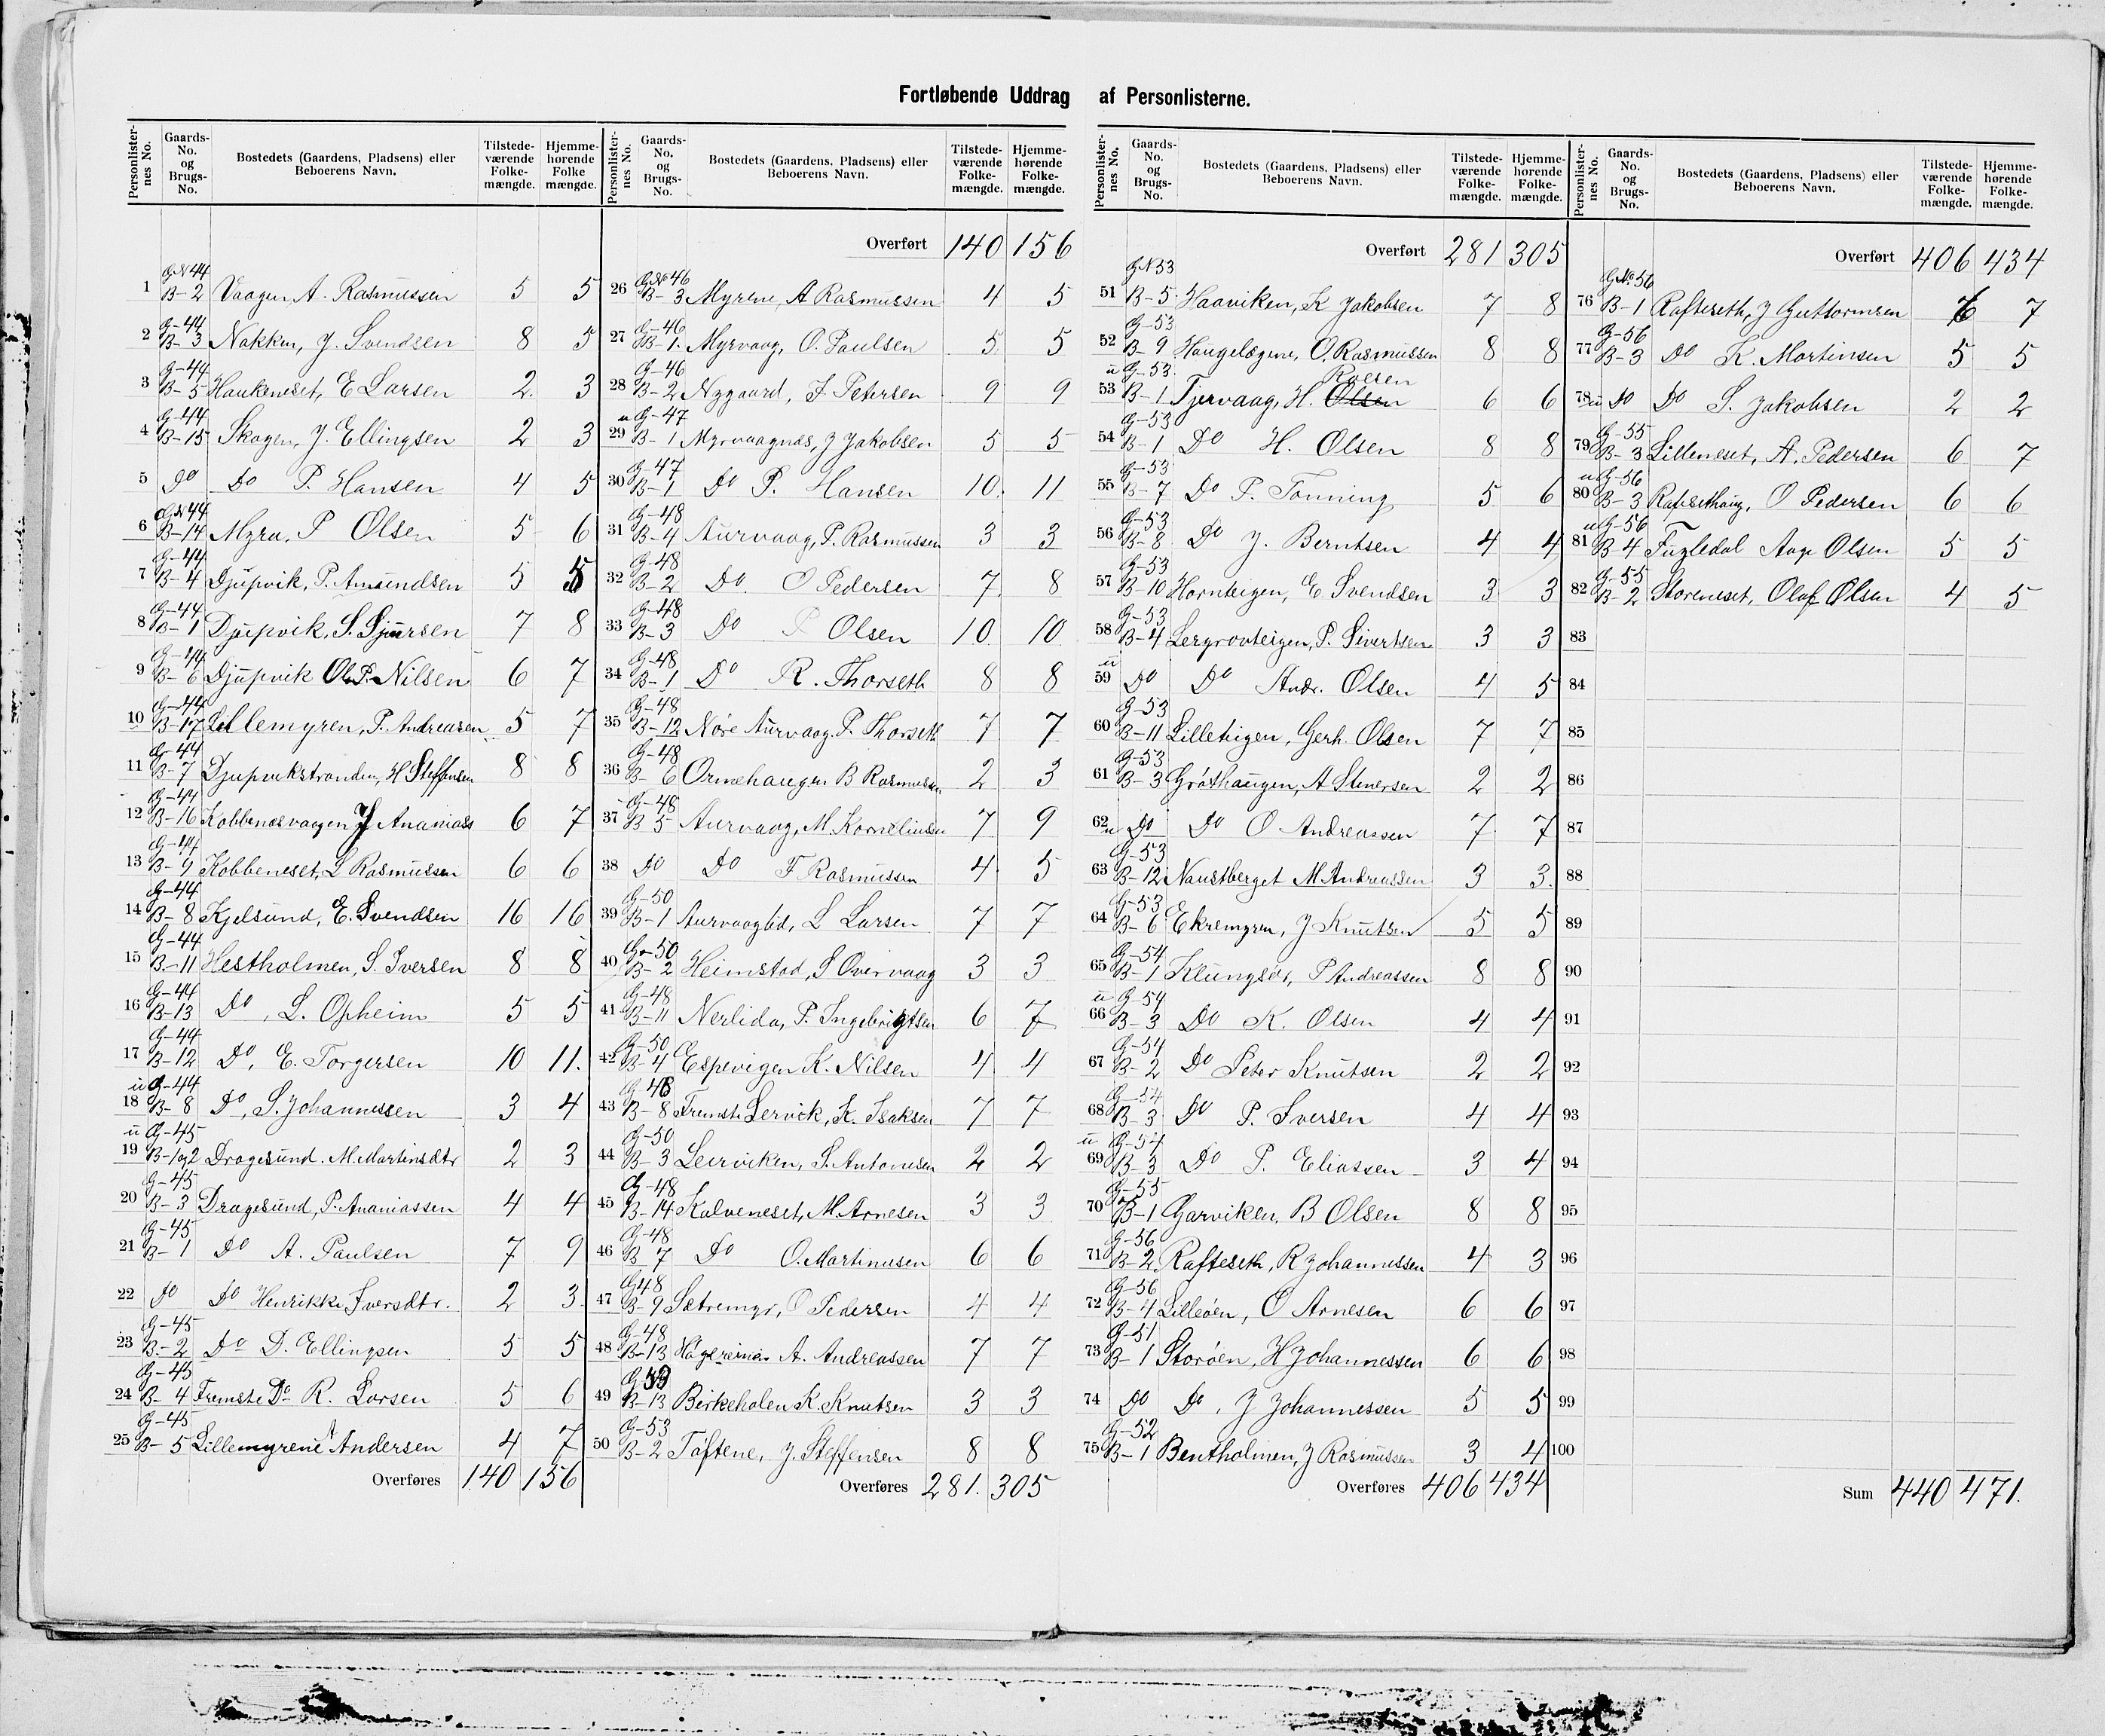 Fortløbende Uddrag af Personlisterne.
Personlisternes No. Gaards-No. og Brugs-No. Bostedets (Gaardens, Pladsens) eller Beboerens Navn. Tilstedeværende Folkemængde. Hjemmehørende Folke mængde.
G N 44
1 B-2 Vaagen, A. Rasmussen 5 5
G-44
2 B-3 Nakken, J. Svendsen 8 5
G-44
3 B-5 Haukeneset, E Larsen 2 3
G-44
4 B-15 Skogen, J. Ellingsen 2 3
5 Do Do P. Hansen 4 5
G N 44
6 B-14 Myra, P Olsen 5 6
G-44
7 B-4 Djupvik, P. Amundsen 5 5
G-44
8 B-1 Djupvik, S. Sjursen 7 8
G-44
9 B-6 Djupvik Ol. P. Nilsen 6 7
G-44
10 B-17 Lillemyren, P. Andreasen 5 7
G-44
11 B-7 Djupvikstranden, H Steffensen 8 8
G-44
12 B-16 Kobbenesvaagen J Ananiass 6 7
G-44
13 B-9 Kobbeneset, L Rasmussen 6 6
G-44
14 B-8 Kjelsund, E. Svendsen 16 16
G-44
15 B-11 Hestholmen, S. Iversen 8 8
G-44
16 B-13 Do, L. Opheim 5 5
G-44
17 B-12 Do, E. Torgersen 10 11.
u G-44
18 B-8 Do, S. Johannessen 3 4
u G-45
19 B-1og2 Dragesund. M. Martinsdtr 2 3
G-45
20 B-3 Dragesund, P. Ananiassen 4 4
G-45
21 B-1 Do A. Paulsen 7 9
22 Do Do Henrikke Iversdtr. 2 3
G-45
23 B-2 Do D. Ellingsen 5 5
G-45
24 B-4 Fremste Do R. Larsen 5 6
G-45
25 B-5 Lillemyrene A Andersen 4 7
Overføres 140 156
Personlisternes No. Gaards-No. og Brugs-No. Bostedets (Gaardens, Pladsens) eller Beboerens Navn. Tilstedeværende Folkemængde. Hjemmehørende Folkemængde.
Overført 140 156
G No 46
26 B-3 Myrene, A Rasmussen 4 5
G-46
27 B-1. Myrvaag, O. Paulsen 5 5
G-46
28 B-2 Nygaard, F Petersen 9 9
u G-47
29 B-1 Myrvaagnæs, J Jakobsen 5 5
G-47
30 B-1 Do P. Hansen 10 11
G-48
31 B-4 Aurvaag, P. Rasmussen 3 3
G-48
32 B-2 Do. O Pedersen 7 8
G-48
33 B-3 Do P Olsen 10 10
G-48
34 B-1 Do R. Thorseth 8 8
G-48
35 B-12 Nøre Aurvaag. P. Thorseth 7 7
G-48
36 B-6 Ormehaugen B Rasmussen 2 3
G-48
37 B 5 Aurvaag, M. Korneliusen 7 9
38 Do Do F Rasmussen 4 5
G-50
39 B-1 Aurvaaglid, L Larsen 7 7
G-50
40 B-2 Heimstad, S Overvaag 3 3
G-48
41 B-11 Nerlida, P. Ingebrigtsen 6 7
G-50
42 B-4 Espevigen K. Nilsen 4 4
G 48
43 B-8 Fremste Lervik, K. Isaksen 7 7
G-50
44 B-3 Leirviken, S. Antonsen 2 2
G-48
45 B-14 Kalveneset, M. Arnesen 3 3
G-48
46 B 7 Do O. Martinusen 6 6
G48
47 B-9 Sætremyr, O Pedersen 4 4
G-48
48 B-13 A. Andreassen 7 7
G 53
49 B-13 Birkeholen K. Knutsen 3 3
G-53
50 B-2 Toftene, J. Steffensen 8 8
Overføres 281. 305
Personlisternes No. Gaards-No. og Brugs-No. Bostedets (Gaardens, Pladsens) eller Beboerens Navn. Tilstedeværende Folkemængde. Hjemmehørende Folkemængde.
Overført 281 305
G N 53
51 B-5 Haaviken, K Jakobsen 7 8
G-53
52 B-9 Haugelægene, O. Rasmussen 8 8
u G-53. Roelsen
53 B-1 Tjervaag, H. Olsen 6 6
G-53
54 B-1 Do H. Olsen 8 8
G-53
55 B-7 Do P. Tonning 5 6
G-53
56 B-8 Do J. Berntsen 4 4
G-53
57 B-10 Hornteigen, E Svendsen 3 3
G-53
58 B-4 Lergrovteigen, P. Sivertsen 3 3
u
59 Do Do Andr. Olsen 4 5
G-53
60 B-11 Lilleteigen, Gerh. Olsen 7 7
G-53
61 B-3 Grøthaugen, A Stenersen 2 2
62 u Do Do O Andreassen 7 7
G-53
63 B-12 Naustberget M Andreassen 3 3.
G-53
64 B-6 Ekremyren, J Knutsen 5 5
G-54
65 B-1 Klungsør, P Andreassen 8 8
u G-54
66 B-3 Do K. Olsen 4 4
G-54
67 B-2 Do Peter Knutsen 2 2
G-54
68 B-3 Do P. Iversen 4 4
u G-54
69 B-3 Do P. Eliassen 3 4
G-55
70 B-1 Garviken, B Olsen 8 8
G-56
71 B-2 Rafteseth, R Johannessen 4 3
G-56
72 B-4 Lilleøen, O Arnesen 6 6
G-51
73 B-1 Storøen, H Johannessen 6 6
74 Do Do, J Johannessen 5 5
G-52
75 B-1 Bentholmen, J Rasmussen 3 4
Overføres 406 434
Personlisternes No. Gaards-No. og Brugs-No. Bostedets (Gaardens, Pladsens) eller Beboerens Navn. Tilstedeværende Folkemængde. Hjemmehørende Folkemængde.
Overført 406 434
G No. 56
76 B-1 Rafteseth, J Guttormsen 6 7
G-56
77 B-3 Do K. Martinsen 5 5
78 u Do Do S. Jakobsen 2 2
G-55
79 B-3 Lilleneset, A. Pedersen 6 7
u G-56
80 B-3 Raftsethaug, O Pedersen 6 6
u G-56
81 B 4 Fugledal Aage Olsen 5 5
G-55
82 B-2 Storeneset, Olaf Olsen 4 5
83
84
85
86
87
88
89
90
91
92
93
94
95
96
97
98
99
100
Sum 440 471.